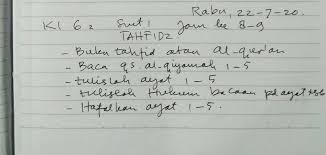 Rabu, 22-7-20.
Kl 6 2 Smt 1 Jam ke 8-9
TAHFIDZ
- Buku tahfid atau al-qur'an
- Baca qs al-qiyamah 1-5
- tulislah ayat 1-5
- tulislah Hukum bacaan pd ayat tsb
- Hafalkan ayat 1-5.